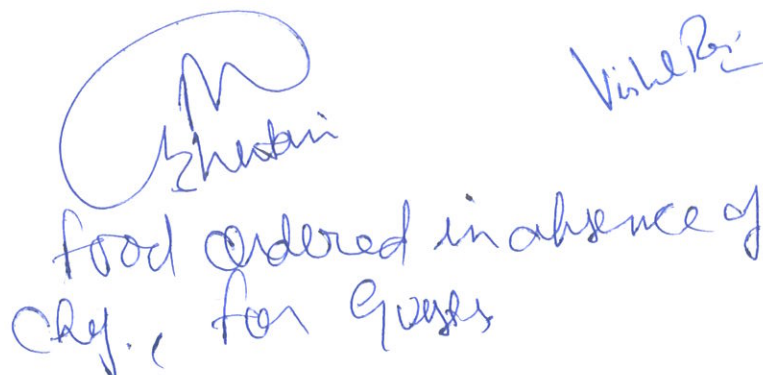 Vishal Raj
food ordered in absence of
Chef., for Guests